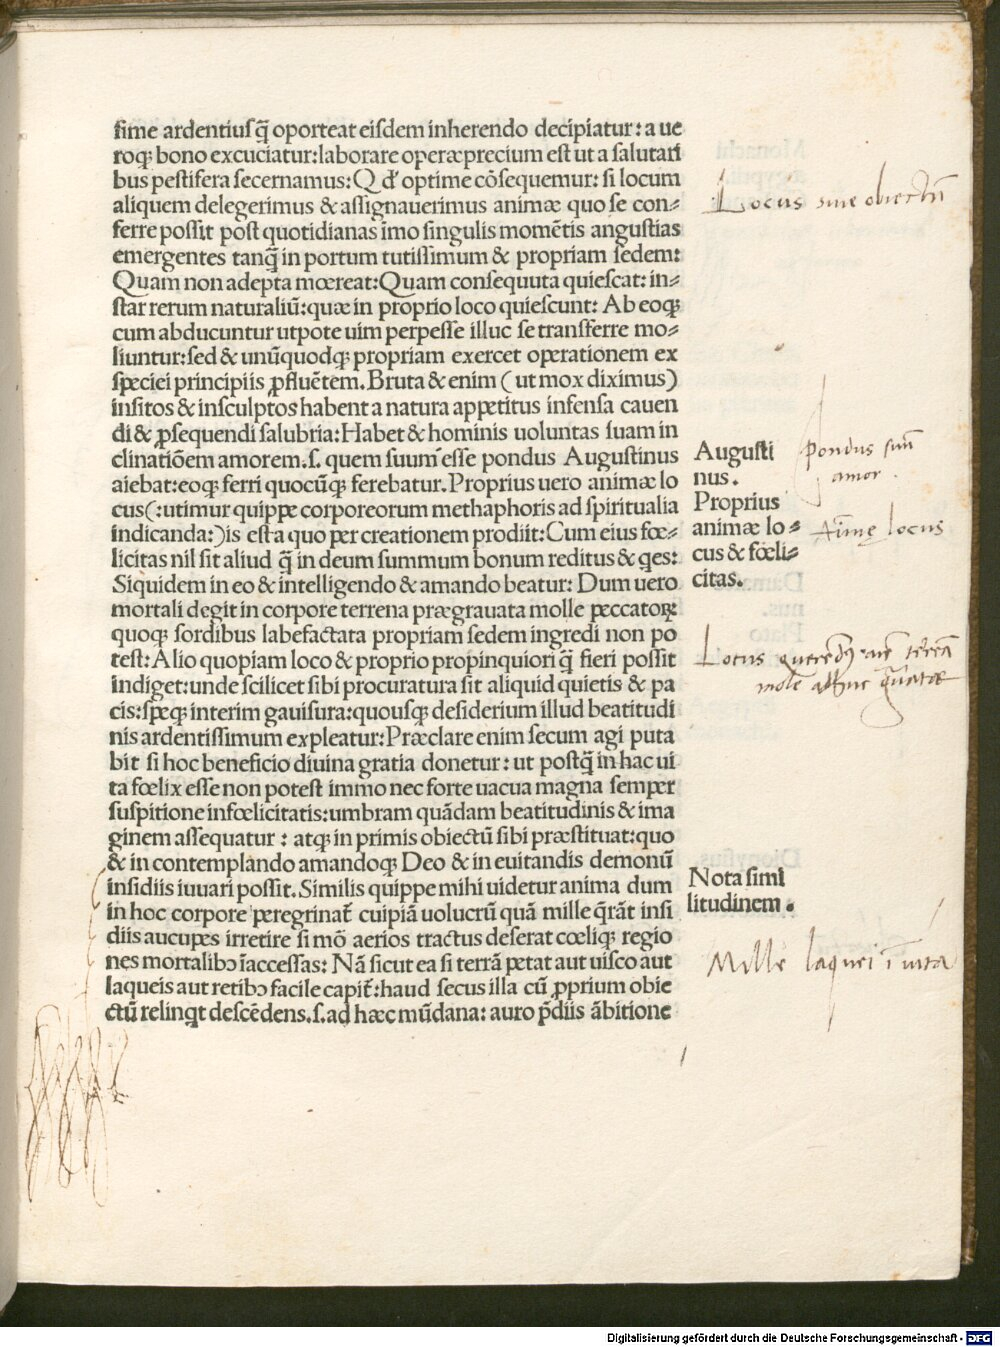 sime ardentiusq̃ oporteat eisdem inherendo decipiatur: a ue
roqꝫ bono excuciatur: laborare operæprecium est ut a salutari
bus pestifera secernamus: Q d' optime cõsequemur: si locum
aliquem delegerimus & assignauerimus animæ quo se con-
ferre possit post quotidianas imo singulis momẽtis angustias
emergentes tanq̃ in portum tutissimum & propriam sedem:
Quam non adepta mœreat: Quam consequuta quiescat: in-
star rerum naturaliũ: quæ in proprio loco quiescunt: Ab eoqꝫ
cum abducuntur utpote uim perpesse illuc se transferre mo-
liuntur: sed & unũquodqꝫ propriam exercet operationem ex
speciei principiis ꝓfluẽtem. Bruta & enim (ut mox diximus)
insitos & insculptos habent a natura appetitus infensa cauen
di & ꝓsequendi salubria: Habet & hominis uoluntas suam in
clinatiõem amorem. s. quem suum esse pondus Augustinus
aiebat: eoqꝫ ferri quocũqꝫ ferebatur. Proprius uero animæ lo
cus (: utimur quippe corporeorum methaphoris ad spiritualia
indicanda:) is est a quo per creationem prodiit: Cum eius fœ-
licitas nil sit aliud q̃ in deum summum bonum reditus & ꝗes:
Siquidem in eo & intelligendo & amando beatur: Dum uero
mortali degit in corpore terrena prægrauata molle peccatoꝝ:
quoqꝫ sordibus labefactata propriam sedem ingredi non po
test: Alio quopiam loco & proprio propinquiori q̃ fieri possit
indiget: unde scilicet sibi procuratura sit aliquid quietis & pa
cis: speqꝫ interim gauisura: quousqꝫ desiderium illud beatitudi
nis ardentissimum expleatur: Præclare enim secum agi puta
bit si hoc beneficio diuina gratia donetur: ut postq̃ in hac ui
ta fœlix esse non potest immo nec forte uacua magna semper
suspitione infœlicitatis: umbram quãdam beatitudinis & ima
ginem assequatur: atqꝫ in primis obiectũ sibi præstituat: quo
& in contemplando amandoqꝫ Deo & in euitandis demonũ
insidiis iuuari possit. Similis quippe mihi uidetur anima dum
in hoc corpore peregrinat̃ cuipiã uolucrũ quã mille q̃rãt insi
diis aucupes irretire si mõ aerios tractus deserat cœliqꝫ regio
nes mortalibꝰ ĩaccessas: Nã sicut ea si terrã petat aut uisco aut
laqueis aut retibꝰ facile capit̃: haud secus illa cũ ꝓprium obie
ctũ relinꝗt descẽdens. s. ad hæc mũdana: auro p̃diis ãbitione
Locus siue obiectũ
Augusti
nus.
Proprius
animæ lo-
cus & fœli-
citas.
Pondus suũ
amor.
Aĩmę locus
Locus
mole adhuc
Nota simi
litudinem.
Mille laquei ĩ uita